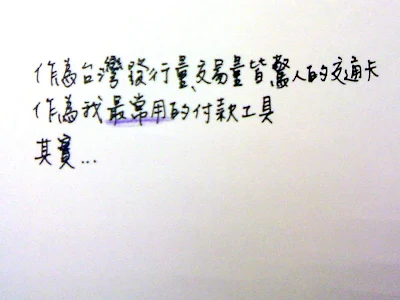 作為台灣發行量、交易量皆驚人的交通卡
作為我最常用的付款工具
其實...